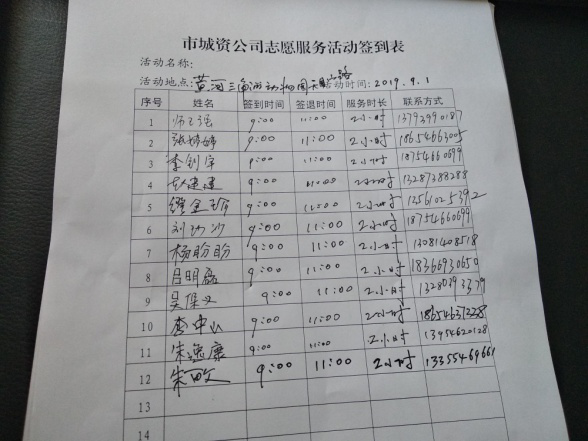 市城资公司志愿服务活动签到表
活动名称:
活动地点:黄河三角洲动物园天目山路 活动时间:2019.9.1
序号 姓名 签到时间 签退时间 服务时长 联系方式
1 9:00 11:00 2小时 13792990187
2 张婷婷 9:00 11:00 2小时 18654663005
3 李钊宇 9:00 11:00 2小时 18754660699
4 赵建建 9:00 11:00 2小时 13287388288
5 9:00 11:00 2小时 13561025392
6 9:00 11:00 2小时 18754660699
7 杨盼盼 9:00 11:00 2小时 13081408518
8 吕明磊 9:00 11:00 2小时 18366930650
9 吴保义 9:00 11:00 2小时 13280393379
10 李中山 9:00 11:00 2小时 18654637228
11 朱逸康 9:00 11:00 2小时 13954620128
12 朱敃 9:00 11:00 2小时 13355469661
13
14